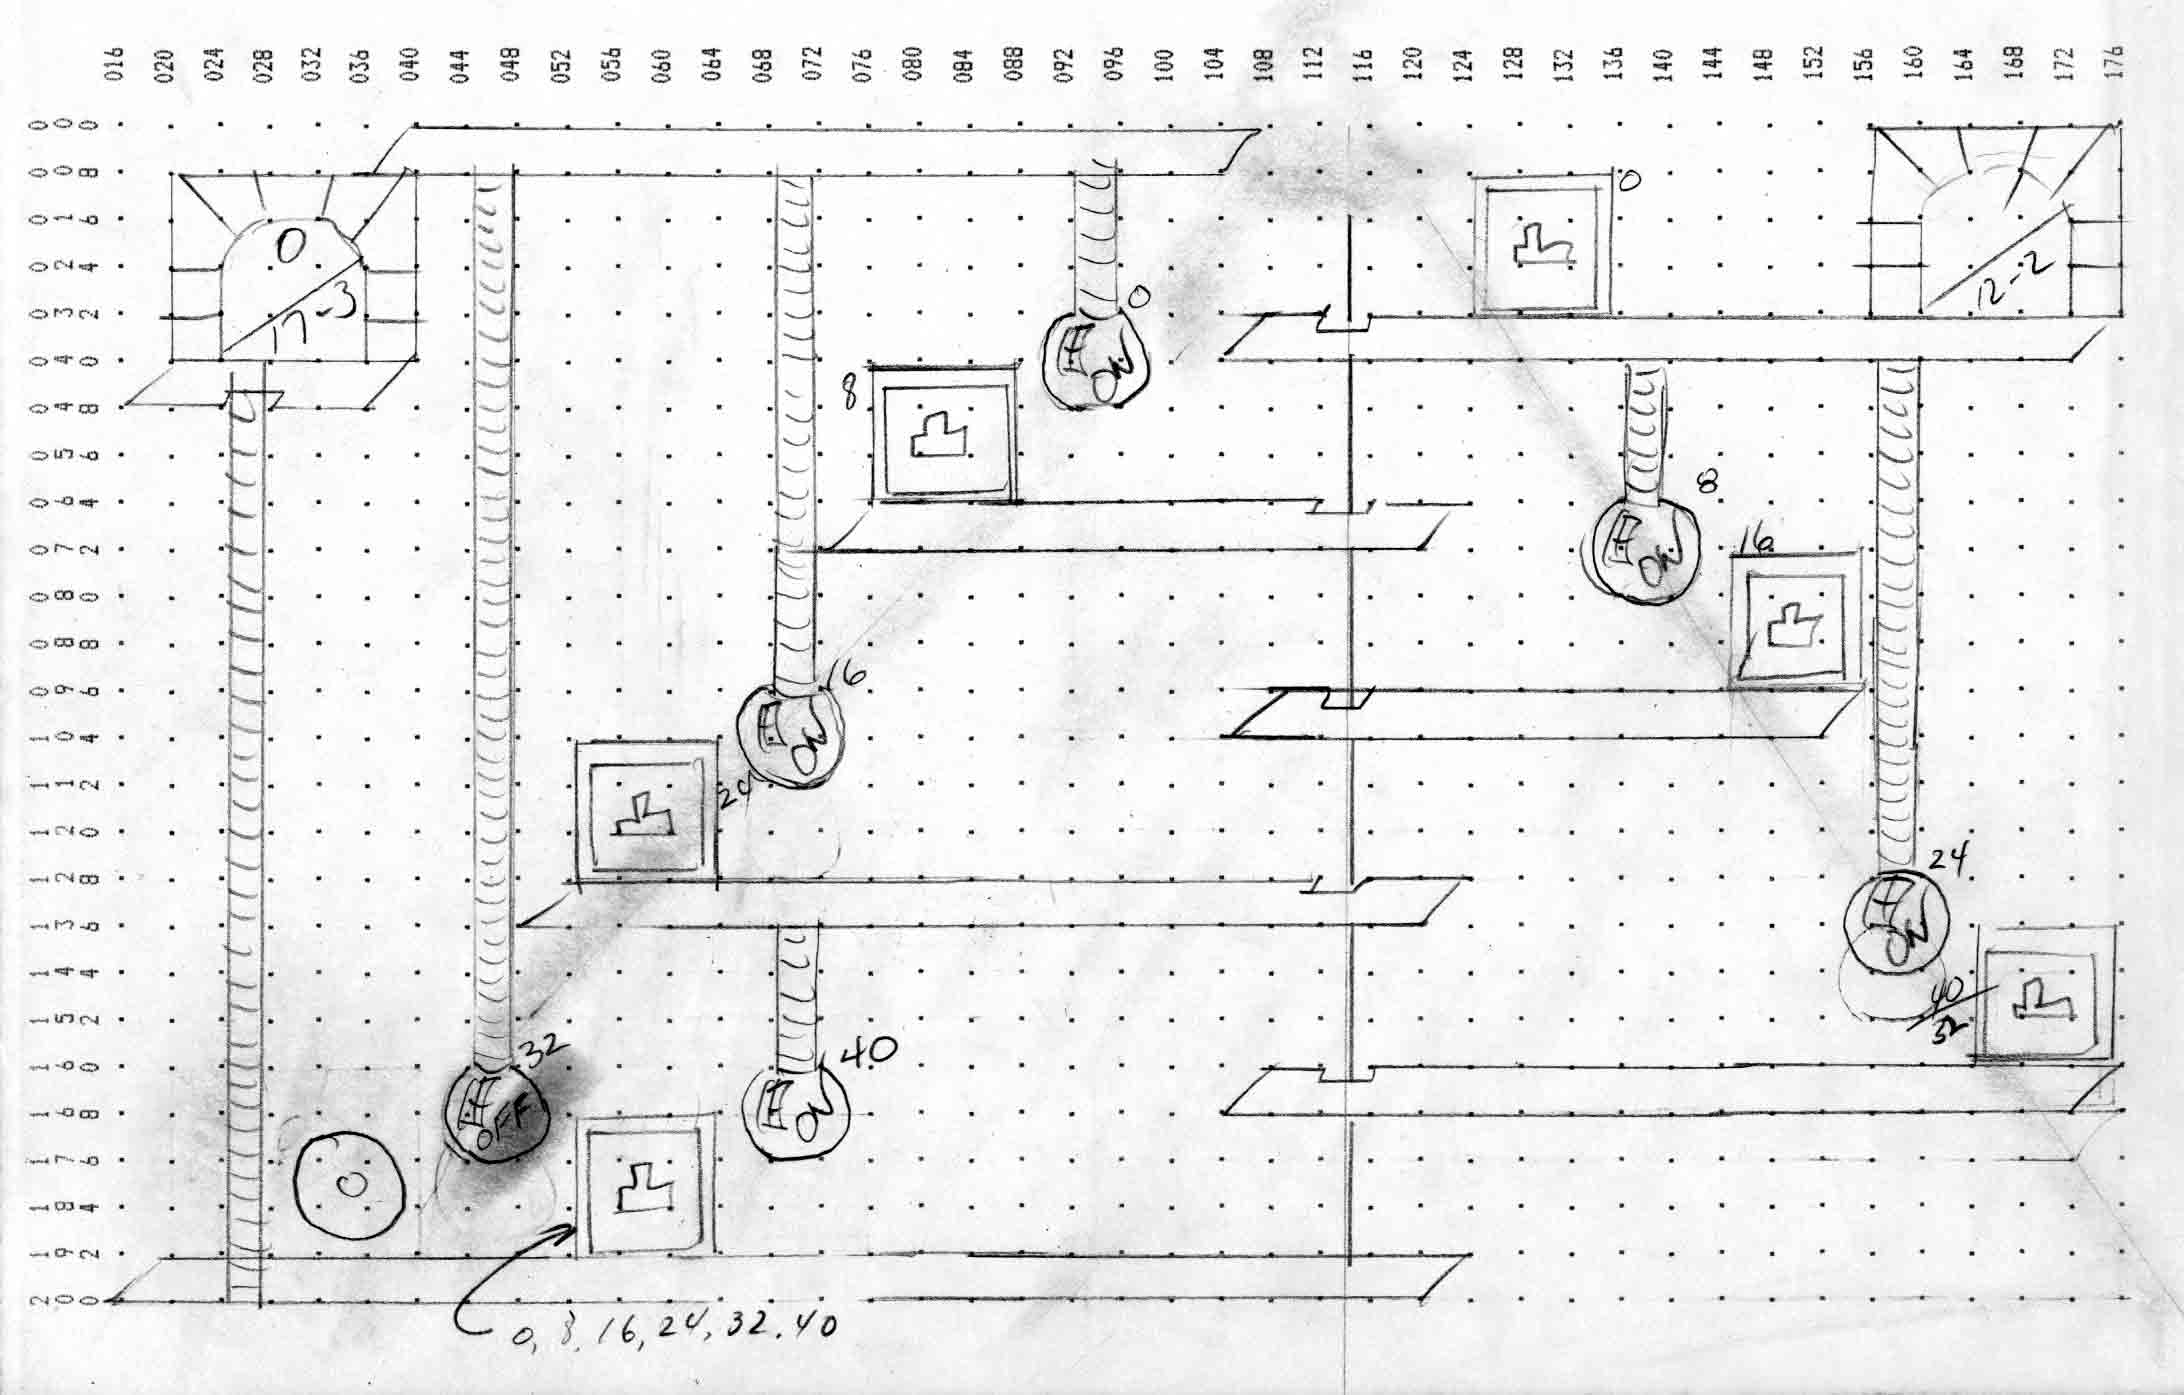 016 020 024 028 032 036 040 044 048 052 056 060 064 068 072 076 080 084 088 092 096 100 104 108 112 116 120 124 128 132 136 140 144 148 152 156 160 164 168 172 176
000
008
016
024
032
040
048
056
064
072
080
088
096
104
112
120
128
136
144
152
160
168
176
184
192
200
0
0
17-3
12-2
0
ON
8
8
ON
16
16
ON
24
24
ON
40
32
32
OFF
40
ON
0
0, 8, 16, 24, 32, 40